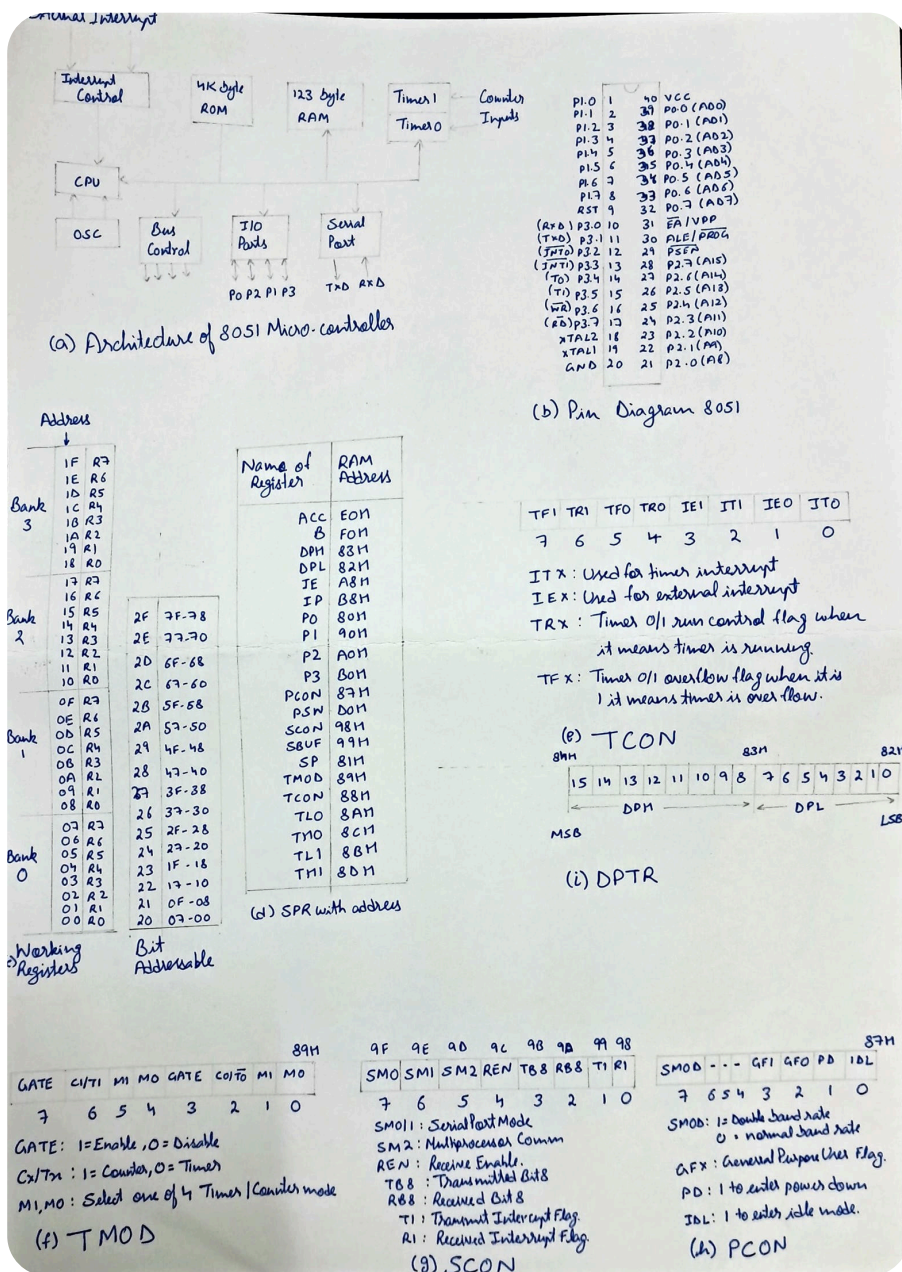 External Interrupt
Interrupt Control
4K byte ROM
123 byte RAM
Timer 1
Timer 0
Counter Inputs
CPU
OSC
Bus Control
I/O Ports
Serial Port
P0 P2 P1 P3
TXD RXD
(a) Architecture of 8051 Micro-controller
P1.0 1 40 VCC
P1.1 2 39 P0.0 (AD0)
P1.2 3 38 P0.1 (AD1)
P1.3 4 37 P0.2 (AD2)
P1.4 5 36 P0.3 (AD3)
P1.5 6 35 P0.4 (AD4)
P1.6 7 34 P0.5 (AD5)
P1.7 8 33 P0.6 (AD6)
RST 9 32 P0.7 (AD7)
(RXD) P3.0 10 31 E̅A̅/VPP
(TXD) P3.1 11 30 ALE/P̅R̅O̅G̅
(I̅N̅T̅0̅) P3.2 12 29 P̅S̅E̅N̅
(I̅N̅T̅1̅) P3.3 13 28 P2.7 (A15)
(T0) P3.4 14 27 P2.6 (A14)
(T1) P3.5 15 26 P2.5 (A13)
(W̅R̅) P3.6 16 25 P2.4 (A12)
(R̅D̅) P3.7 17 24 P2.3 (A11)
XTAL2 18 23 P2.2 (A10)
XTAL1 19 22 P2.1 (A9)
GND 20 21 P2.0 (A8)
(b) Pin Diagram 8051
Address
Bank 3
1F R7
1E R6
1D R5
1C R4
1B R3
1A R2
19 R1
18 R0
Bank 2
17 R7
16 R6
15 R5
14 R4
13 R3
12 R2
11 R1
10 R0
Bank 1
0F R7
0E R6
0D R5
0C R4
0B R3
0A R2
09 R1
08 R0
Bank 0
07 R7
06 R6
05 R5
04 R4
03 R3
02 R2
01 R1
00 R0
c) Working Registers
2F 7F-78
2E 77-70
2D 6F-68
2C 67-60
2B 5F-58
2A 57-50
29 4F-48
28 47-40
27 3F-38
26 37-30
25 2F-28
24 27-20
23 1F-18
22 17-10
21 0F-08
20 07-00
Bit Addressable
Name of Register RAM Address
ACC E0H
B F0H
DPH 83H
DPL 82H
IE A8H
IP B8H
P0 80H
P1 90H
P2 A0H
P3 B0H
PCON 87H
PSW D0H
SCON 98H
SBUF 99H
SP 81H
TMOD 89H
TCON 88H
TL0 8AH
TH0 8CH
TL1 8BH
TH1 8DH
(d) SPR with address
TF1 TR1 TF0 TR0 IE1 IT1 IE0 IT0
7 6 5 4 3 2 1 0
ITX : Used for timer interrupt
IEX : Used for external interrupt
TRX : Timer 0/1 run control flag when
it means timer is running.
TFX : Timer 0/1 overflow flag when it is
1 it means timer is over flow.
(e) TCON
84H 83H 82H
15 14 13 12 11 10 9 8 7 6 5 4 3 2 1 0
DPH DPL
MSB LSB
(i) DPTR
89H
GATE C1/T1 M1 M0 GATE C0/T̅0̅ M1 M0
7 6 5 4 3 2 1 0
GATE : 1=Enable, 0=Disable
Cx/Tx : 1=Counter, 0=Timer
M1, M0 : Select one of 4 Timer/Counter mode
(f) TMOD
9F 9E 9D 9C 9B 9A 99 98
SM0 SM1 SM2 REN TB8 RB8 T1 R1
7 6 5 4 3 2 1 0
SM0|1 : Serial Port Mode
SM2 : Multiprocessor Comm
REN : Receive Enable.
TB8 : Transmitted Bit8
RB8 : Received Bit8
T1 : Transmit Interrupt Flag.
R1 : Received Interrupt Flag.
(g) SCON
87H
SMOD - - - GF1 GF0 PD IDL
7 6 5 4 3 2 1 0
SMOD : 1=Double baud rate
0 = normal baud rate
GFX : General Purpose User Flag.
PD : 1 to enter power down
IDL : 1 to enter idle mode.
(h) PCON